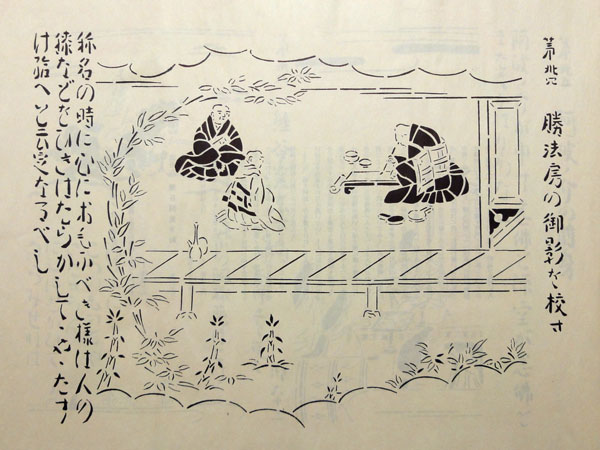 勝法房の御影を校す
称名の時に心におもふべき様は人の
膝などをひきはたらかして、や、たす
け給へと云定なるべし